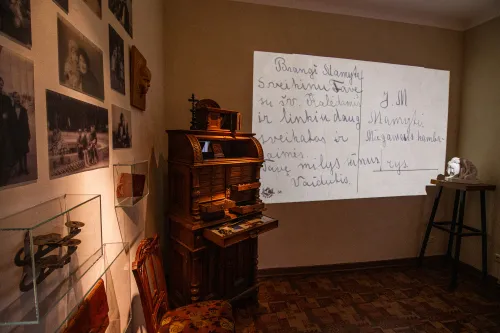 Brangi Mamytė
Sveikinu Tave
su šv. Kalėdomis
ir linkiu daug
sveikatos ir
laimės
Tave milys sinus
Vaidutis.
J. M
Mamytė
Miegamasis kamba-
rys